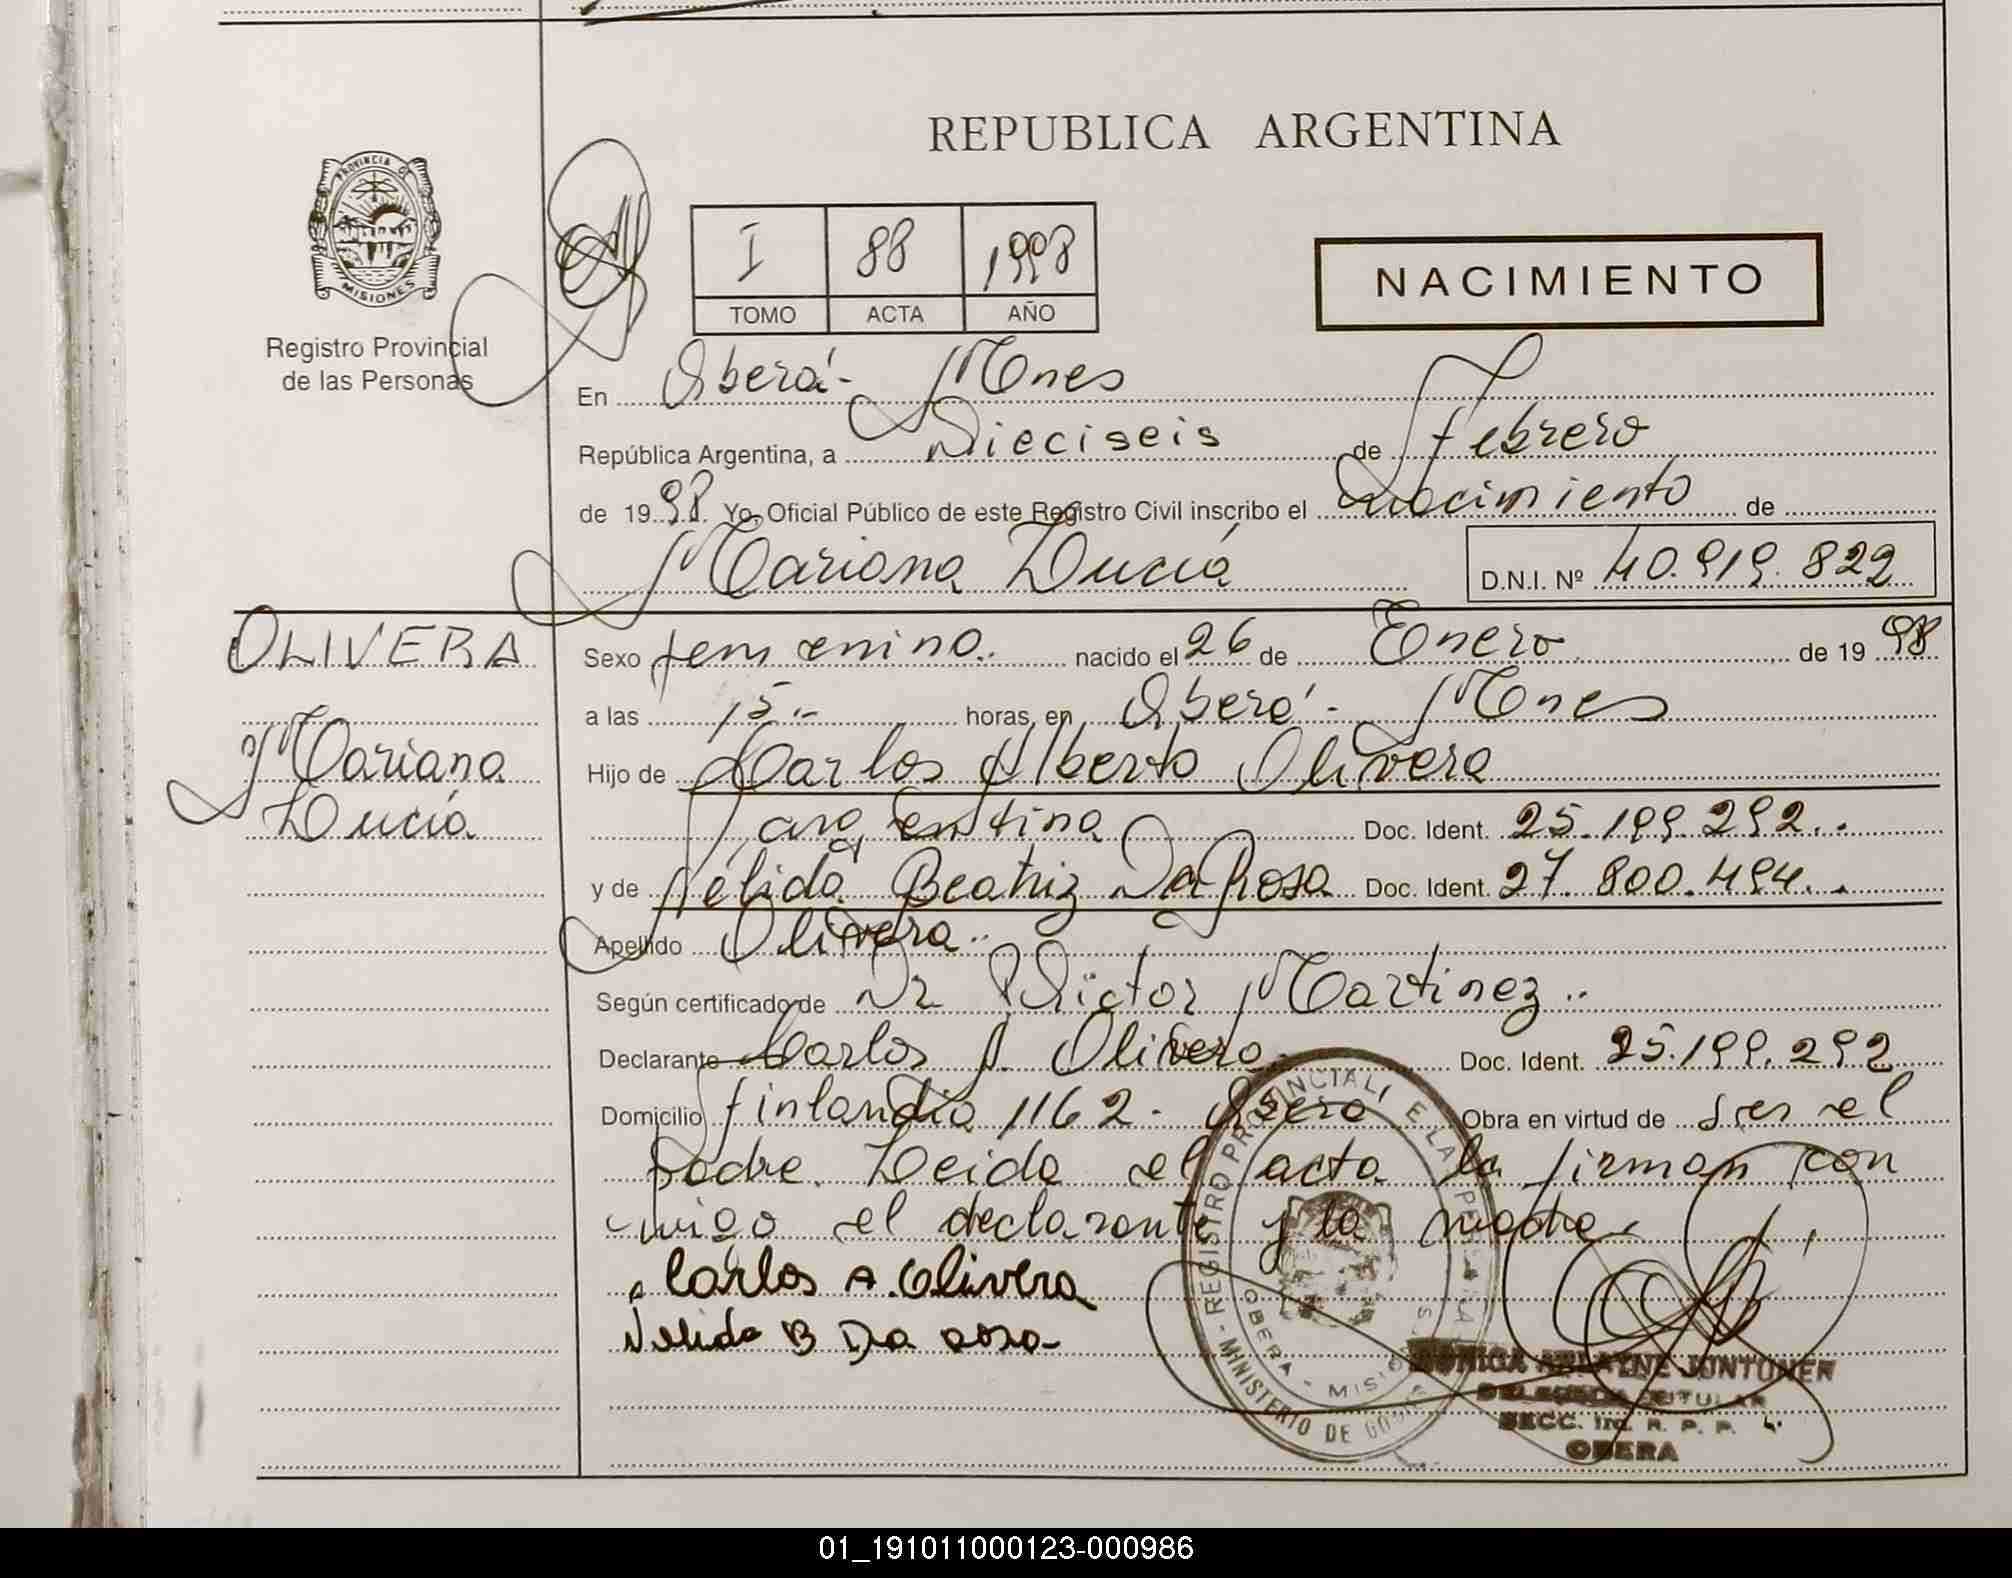 REPUBLICA ARGENTINA
PROVINCIA DE
MISIONES
Registro Provincial
de las Personas
I 88 1998
TOMO ACTA AÑO
NACIMIENTO
En Oberá - Mnes
República Argentina, a Dieciseis de Febrero
de 1998. Yo, Oficial Público de este Registro Civil inscribo el nacimiento de
Mariana Lucía D.N.I. Nº 40.919.822
OLIVERA
Mariana
Lucía
Sexo femenino.. nacido el 26 de Enero de 1998
a las 15.- horas, en Oberá - Mnes
Hijo de Carlos Alberto Olivera
argentina Doc. Ident. 25.199.292..
y de Nélida Beatriz Da Rosa Doc. Ident. 27.800.494..
Apellido Olivera..
Según certificado de Dr Victor Martinez..
Declarante Carlos A. Olivera. Doc. Ident. 25.199.292
Domicilio finlandia 1162 - Oberá Obra en virtud de ser el
padre. Leida el acta la firman con
migo el declarante y la madre.
Carlos A. Olivera
Nelida B Da rosa
REGISTRO PROVINCIAL DE LAS PERSONAS
MINISTERIO DE GOB
OBERA - MISIONES
MONICA JUNTUNEN
DELEGADA TITULAR
SECC. 1ra. R. P. P.
OBERA
01_191011000123-000986